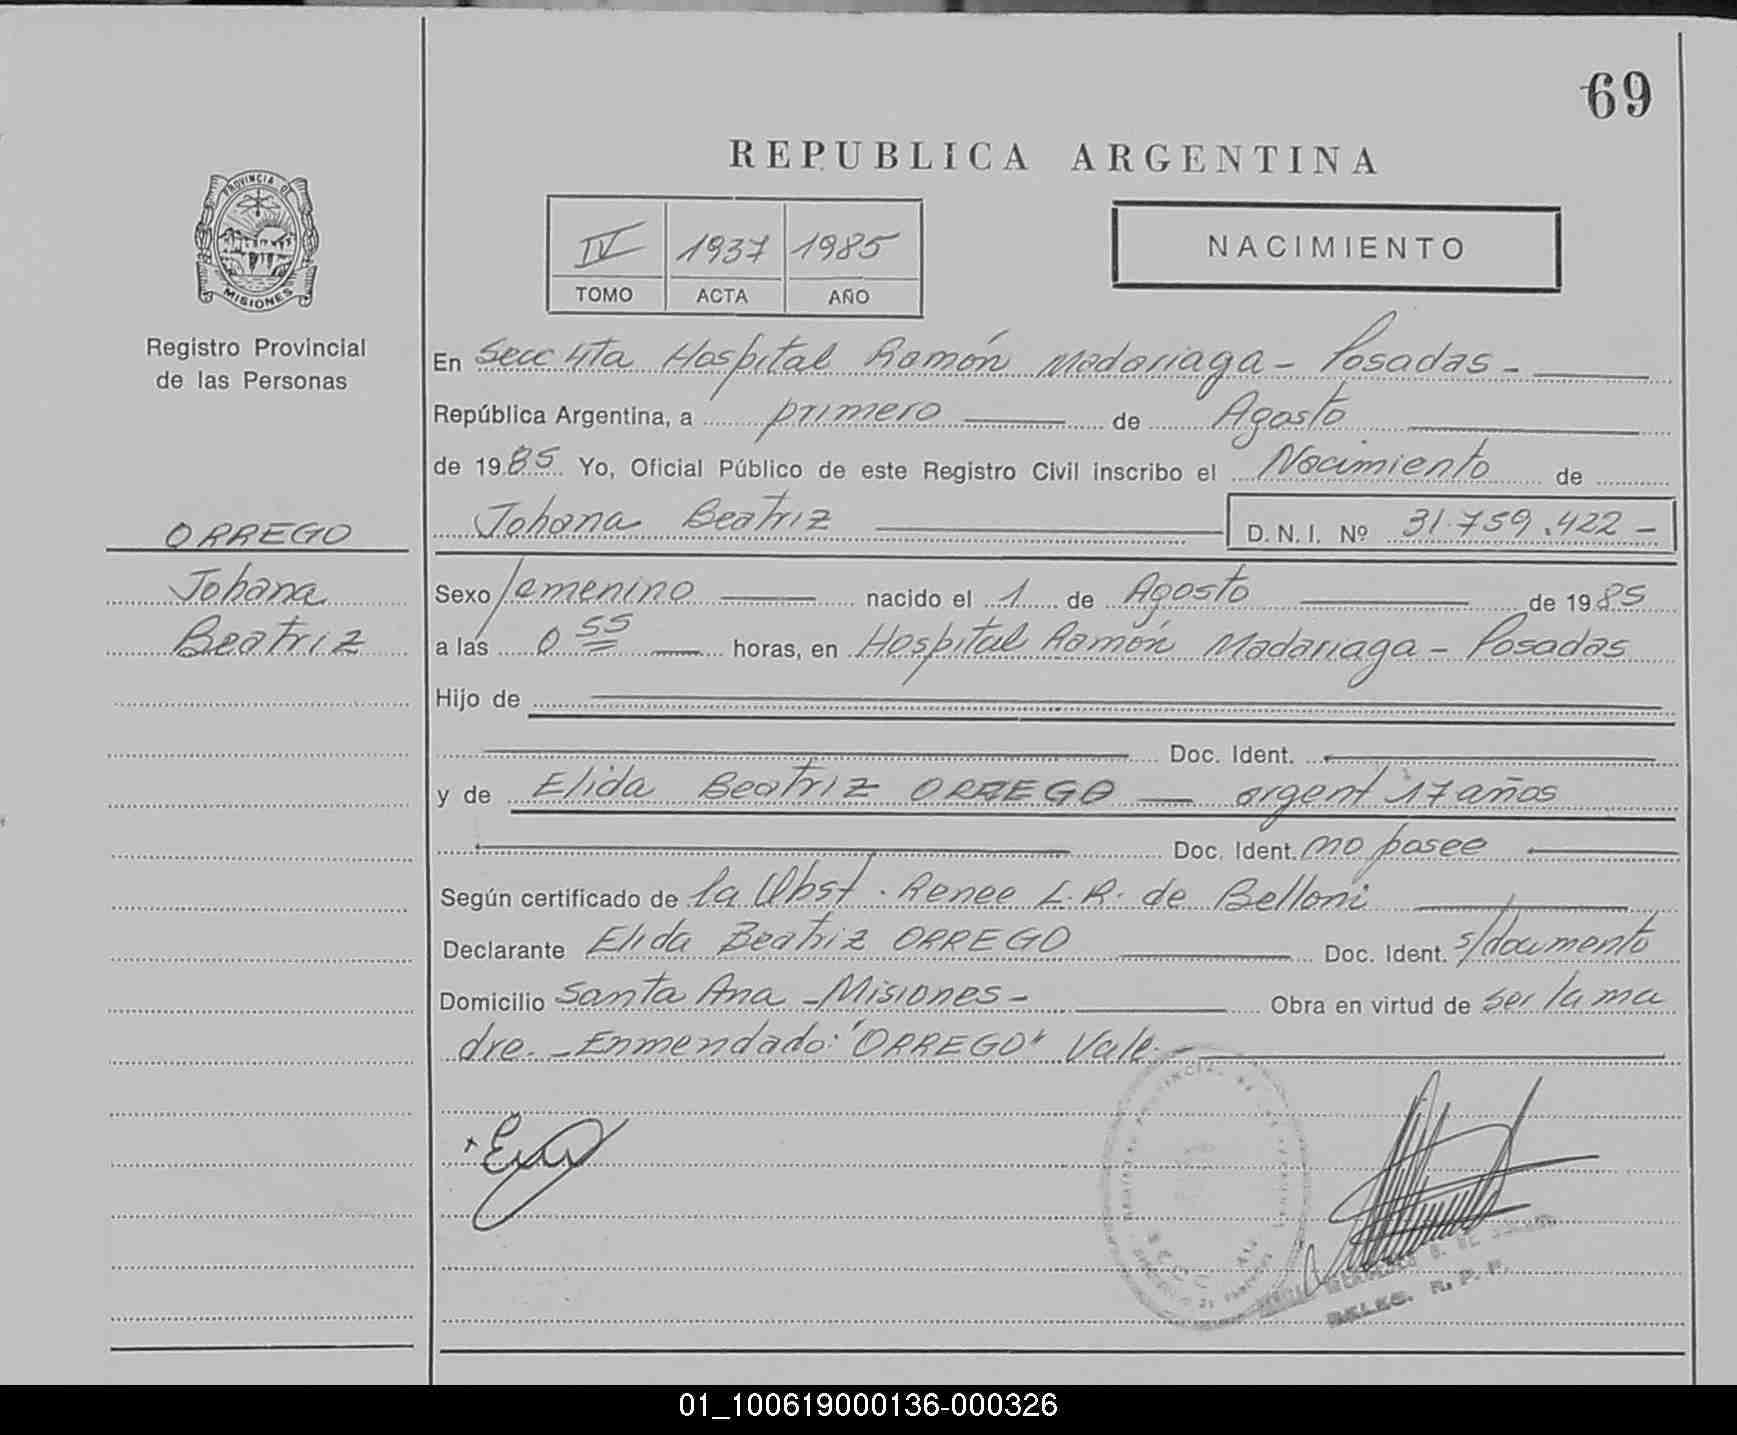 69
REPUBLICA ARGENTINA
PROVINCIA DE
MISIONES
Registro Provincial
de las Personas
IV 1937 1985
TOMO ACTA AÑO
NACIMIENTO
En Secc 4ta Hospital Ramón Madariaga - Posadas -
República Argentina, a primero de Agosto
de 1985 Yo, Oficial Público de este Registro Civil inscribo el Nacimiento de
Johana Beatriz D. N. I. Nº 31.759.422 -
ORREGO
Johana
Beatriz
Sexo femenino nacido el 1 de Agosto de 1985
a las 0 55 horas, en Hospital Ramón Madariaga - Posadas
Hijo de
Doc. Ident.
y de Elida Beatriz ORREGO — argent 17 años
Doc. Ident. no posee
Según certificado de la Obst. Renee L. R. de Belloni
Declarante Elida Beatriz ORREGO Doc. Ident. s/documento
Domicilio Santa Ana - Misiones - Obra en virtud de ser la ma
dre. - Enmendado: "ORREGO" Vale. -
DELEG. R. P. P.
01_100619000136-000326